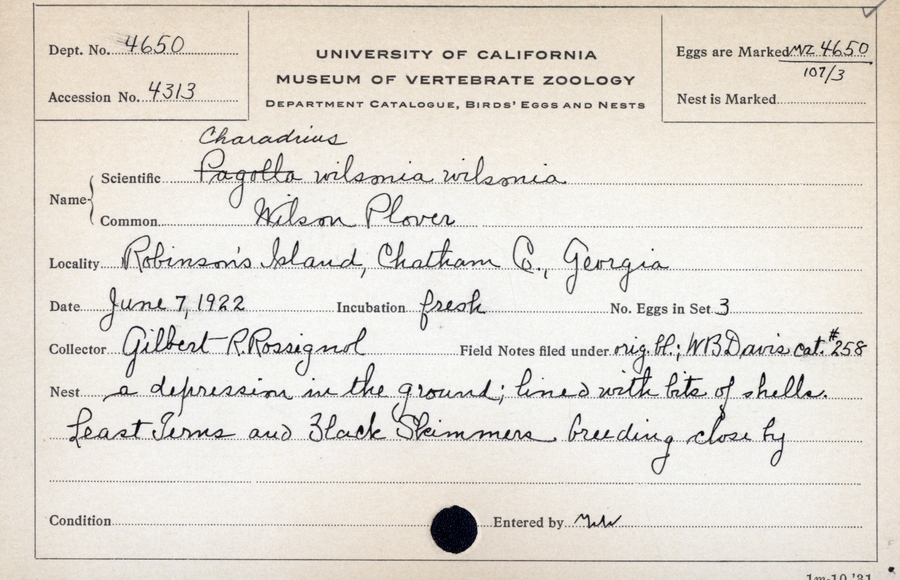 Dept. No. 4650
Accession No. 4313
UNIVERSITY OF CALIFORNIA
MUSEUM OF VERTEBRATE ZOOLOGY
DEPARTMENT CATALOGUE, BIRDS' EGGS AND NESTS
Eggs are Marked MVZ 4650
107/3
Nest is Marked
Charadrius
Name Scientific Pagolla wilsonia wilsonia
Common Wilson Plover
Locality Robinson's Island, Chatham Co., Georgia
Date June 7, 1922 Incubation fresh No. Eggs in Set 3
Collector Gilbert R. Rossignol Field Notes filed under orig. bl.; WB Davis cat. #258
Nest a depression in the ground; lined with bits of shells.
Least Terns and Black Skimmers breeding close by
Condition Entered by
1m-10,'31